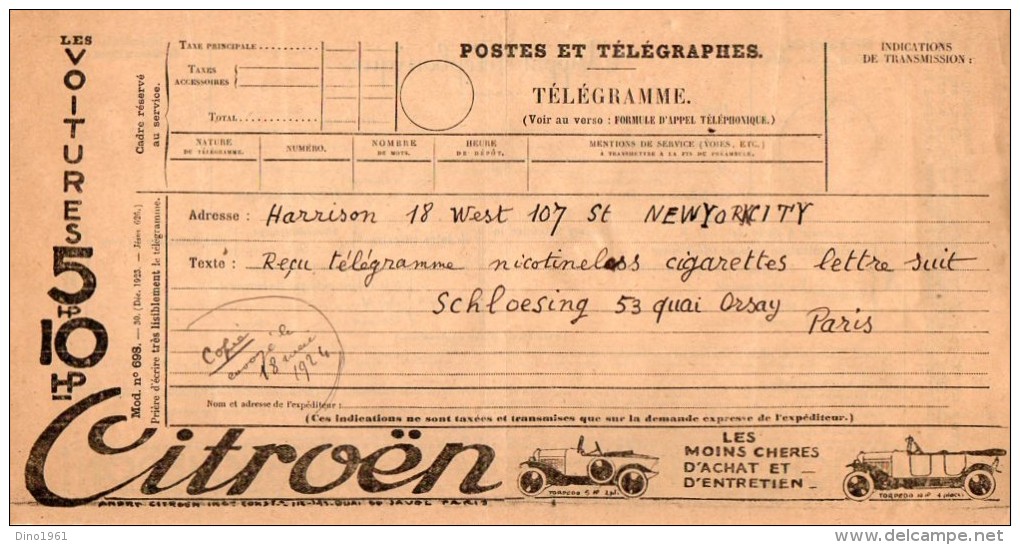 LES
VOITURES
5 HP
10 HP
Citroën
Cadre réservé
au service.
TAXE PRINCIPALE
TAXES
ACCESSOIRES
TOTAL
POSTES ET TÉLÉGRAPHES.
TÉLÉGRAMME.
(Voir au verso : FORMULE D'APPEL TÉLÉPHONIQUE.)
INDICATIONS
DE TRANSMISSION :
NATURE
DU TÉLÉGRAMME.
NUMÉRO.
NOMBRE
DE MOTS.
HEURE
DE DÉPÔT.
MENTIONS DE SERVICE (VOIES, ETC.)
À TRANSMETTRE À LA FIN DU PRÉAMBULE.
Mod. n° 698. — 30. (Déc. 1923. —
Prière d'écrire très lisiblement le télégramme.
Adresse : Harrison 18 West 107 St NEWYORKCITY
Texte : Reçu télégramme nicotineless cigarettes lettre suit
Schloesing 53 quai Orsay
Paris
Copie
envoyé le
18 mai
1924
Nom et adresse de l'expéditeur :
(Ces indications ne sont taxées et transmises que sur la demande expresse de l'expéditeur.)
LES
MOINS CHERES
D'ACHAT ET
D'ENTRETIEN
TORPEDO 5 HP 2 pl.
TORPEDO 10 HP 4
ANDRÉ CITROËN INGr CONSTr 143 QUAI DE JAVEL PARIS
Dino1961